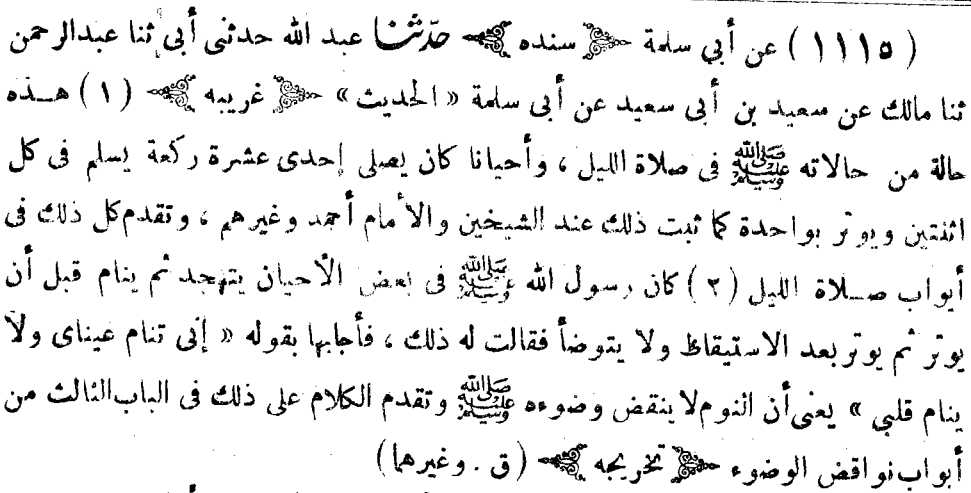 ( ١١١٥ ) عن أبي سلمة ﴿ سنده ﴾ حدّثنا عبد الله حدثنى أبى ثنا عبدالرحمن
ثنا مالك عن سعيد بن أبى سعيد عن أبى سلمة « الحديث » ﴿ غريبه ﴾ ( ١ ) هـذه
حالة من حالاته ﷺ فى صلاة الليل ، وأحيانا كان يصلى إحدى عشرة ركعة يسلم فى كل
اثنتين ويوتر بواحدة كما ثبت ذلك عند الشيخين والأمام أحمد وغيرهم ، وتقدم كل ذلك فى
أبواب صـلاة الليل ( ٢ ) كان رسول الله ﷺ فى بعض الأحيان يتهجد ثم ينام قبل أن
يوتر ثم يوتر بعد الاستيقاظ ولا يتوضأ فقالت له ذلك ، فأجابها بقوله « إنى تنام عيناى ولا
ينام قلبي » يعنى أن النوم لا ينقض وضوءه ﷺ وتقدم الكلام على ذلك فى الباب الثالث من
أبواب نواقض الوضوء ﴿ تخريجه ﴾ ( ق . وغيرهما )